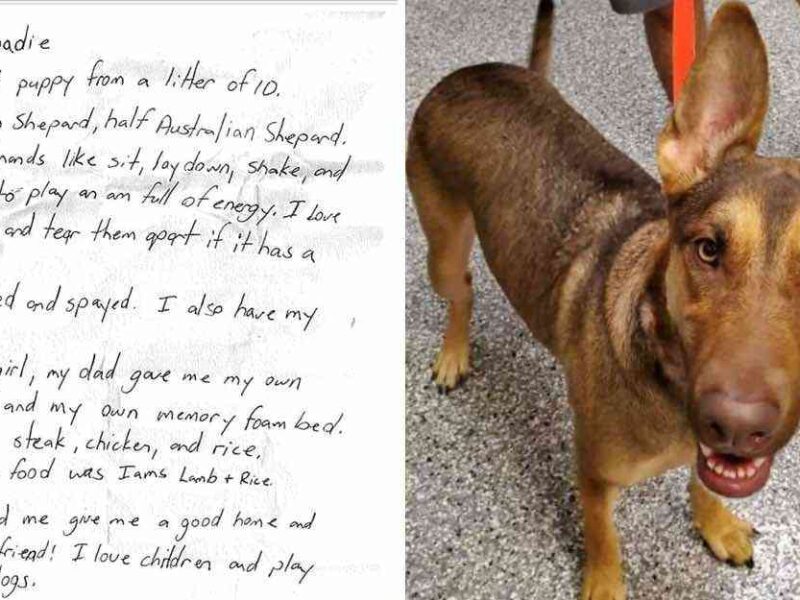 adie
puppy from a litter of 10.
Shepard, half Australian Shepard.
ands like sit, lay down, shake, and
to play an am full of energy. I love
and tear them apart if it has a
ed and spayed. I also have my
irl, my dad gave me my own
and my own memory foam bed.
steak, chicken, and rice.
food was Iams Lamb + Rice.
d me give me a good home and
friend! I love children and play
ogs.